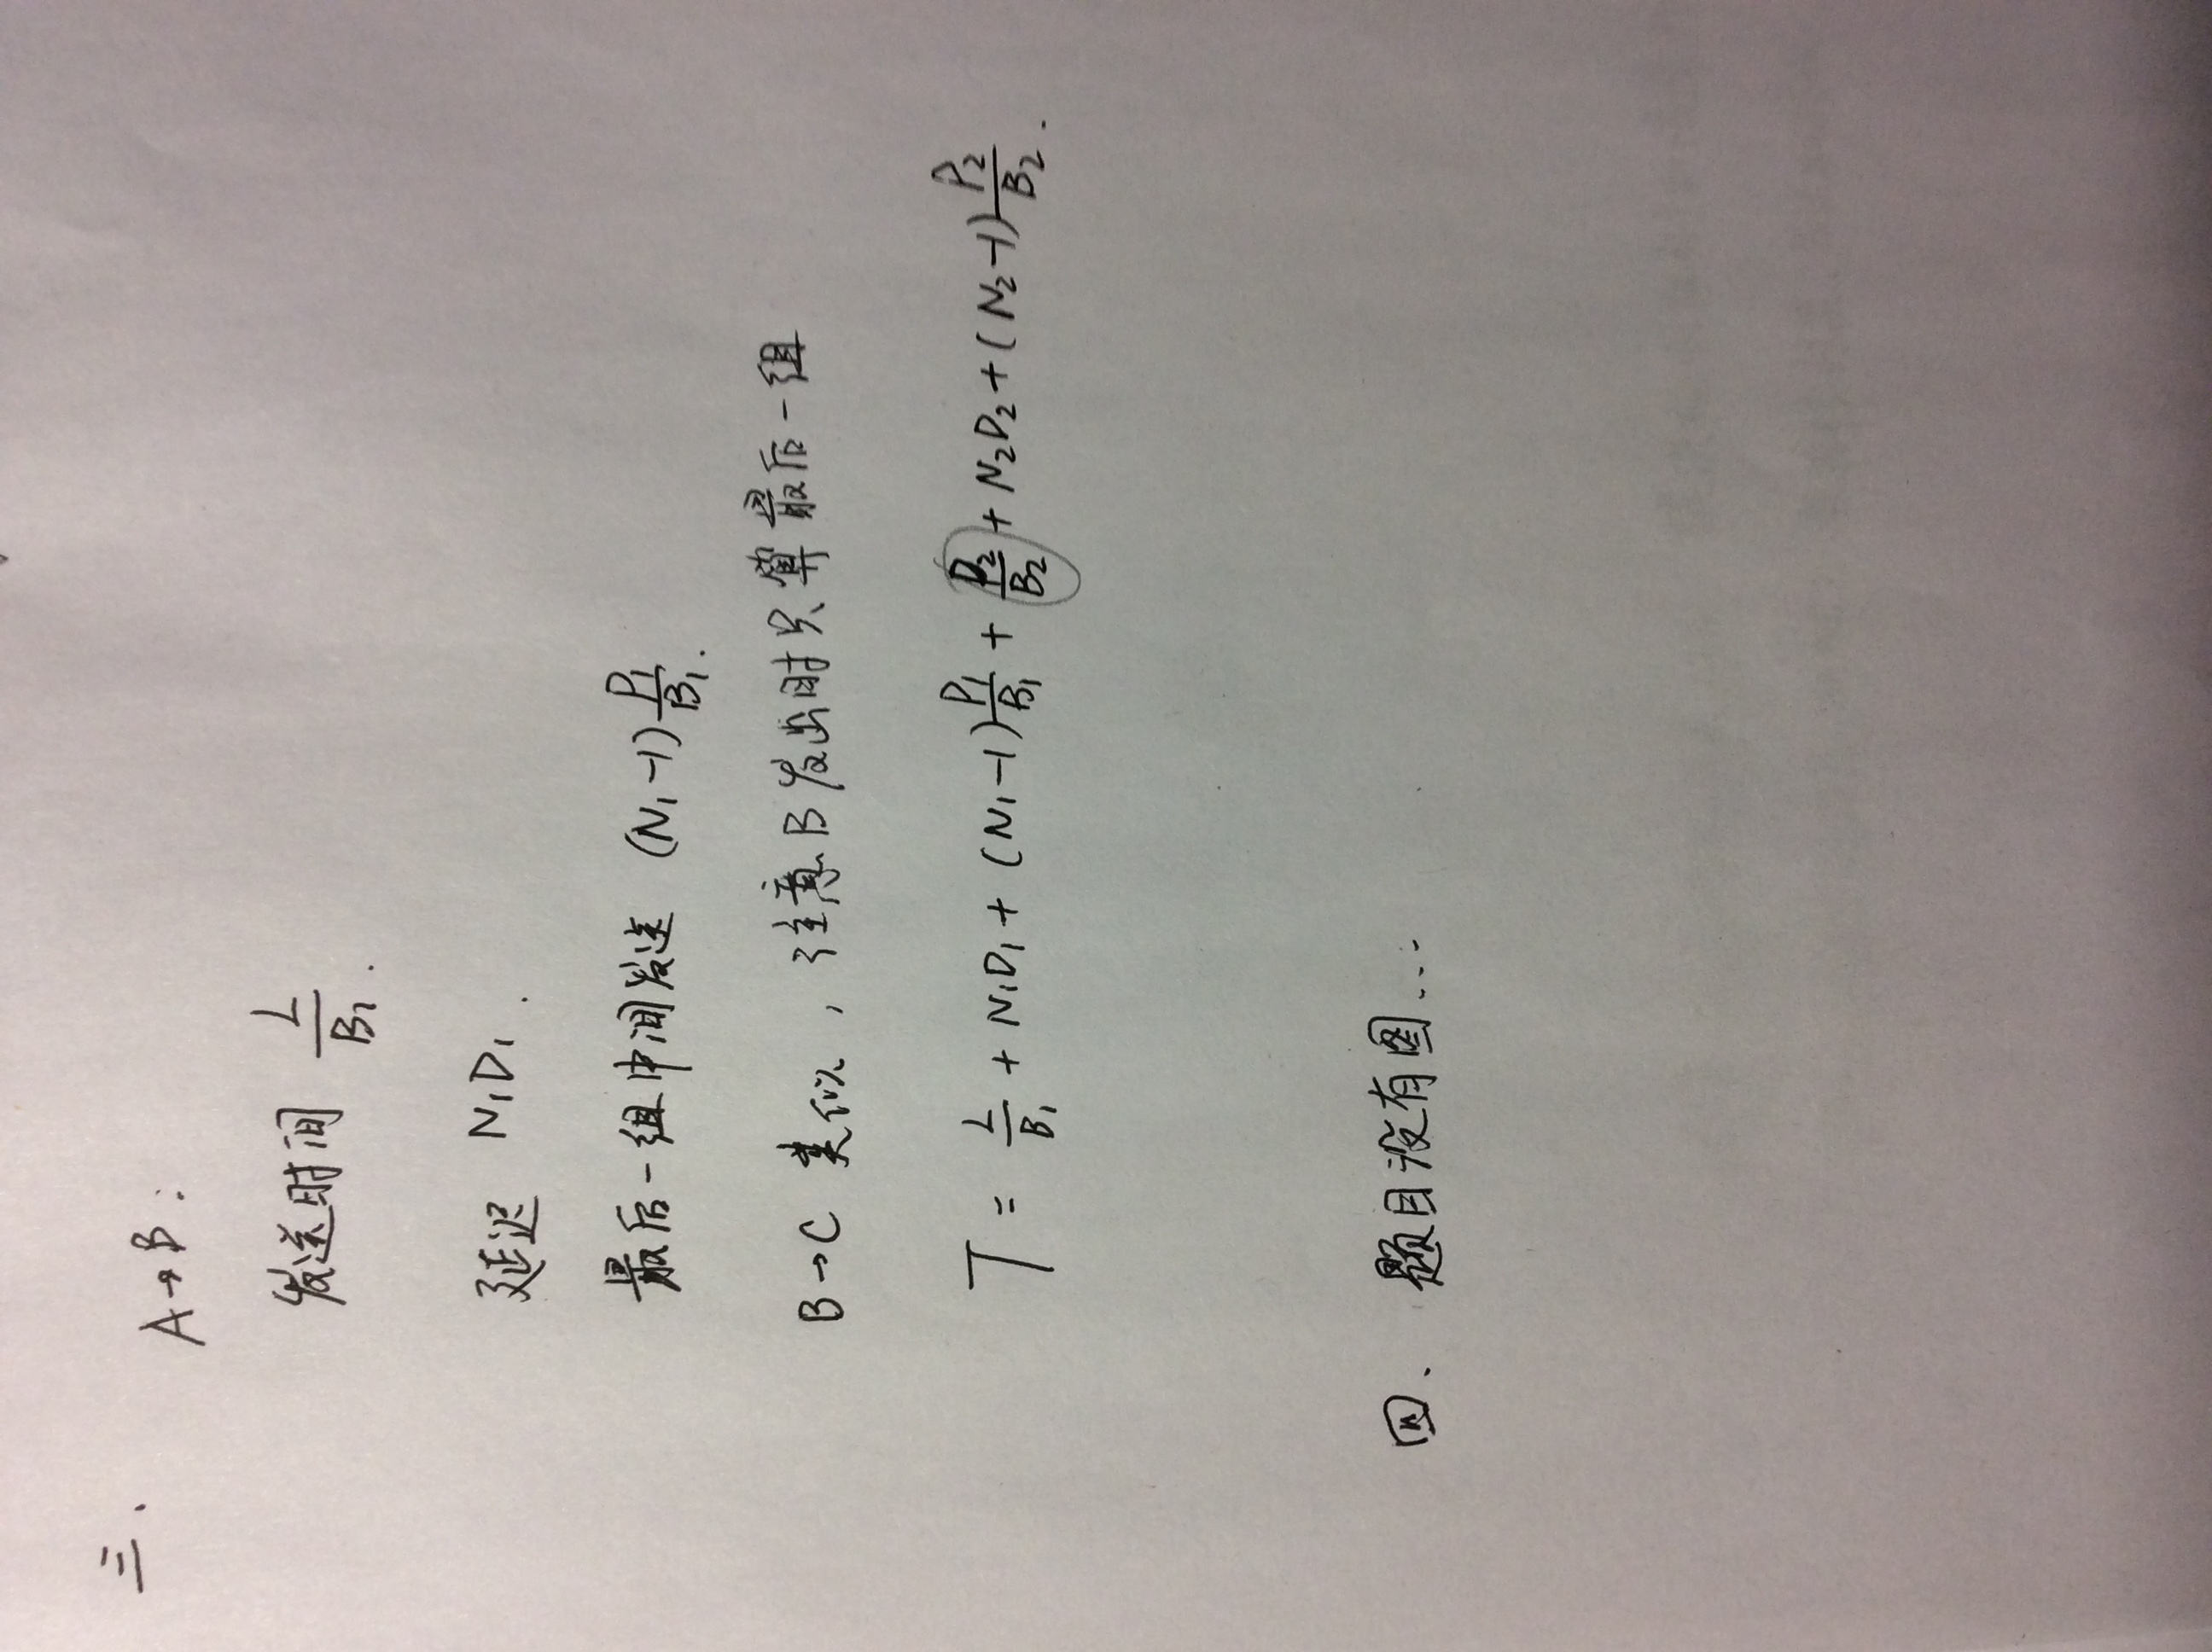 三.
A→B:
发送时间 L/B₁.
延迟 N₁D₁.
最后一组中间发送 (N₁-1)P₁/B₁.
B→C 类似,注意B发出时只算最后一组
T = L/B₁ + N₁D₁ + (N₁-1)P₁/B₁ + P₂/B₂ + N₂D₂ + (N₂-1)P₂/B₂.
四. 题目没有图...